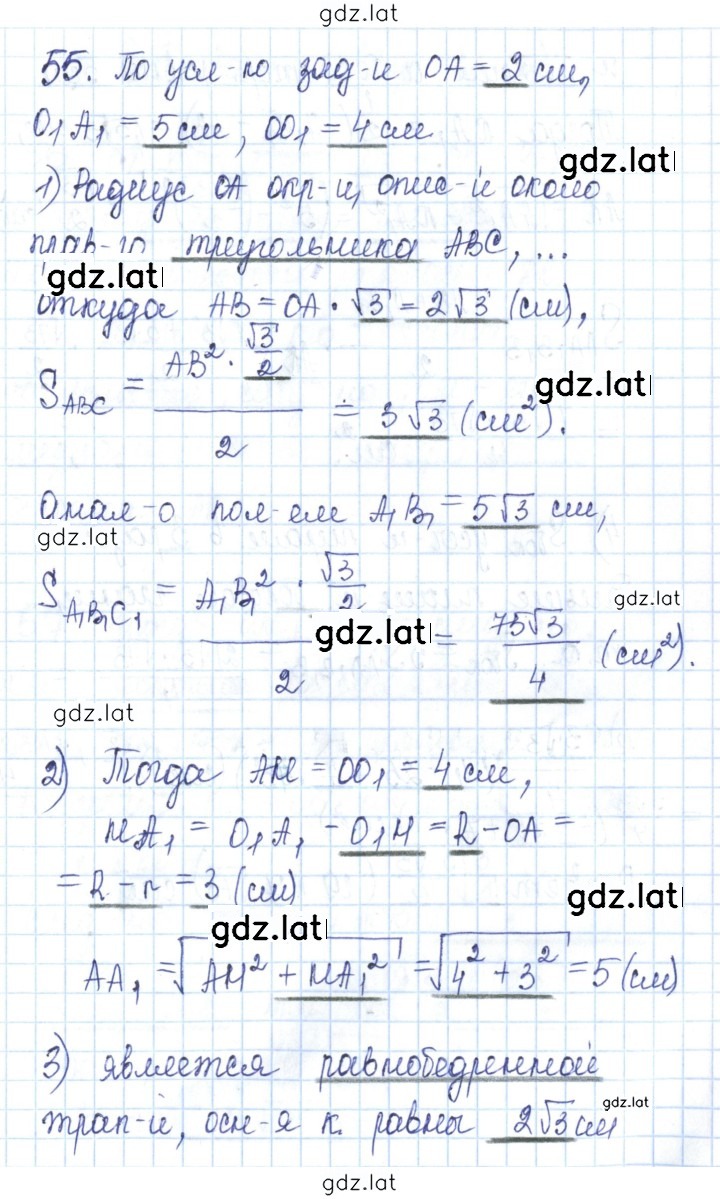 gdz.lat
55. По усл-ю зад-и OA = 2 см,
O₁A₁ = 5 см, OO₁ = 4 см
gdz.lat
1) Радиус OA окр-и, опис-й около
треугольника ABC, ...
gdz.lat
откуда AB = OA · √3 = 2√3 (см),
S_ABC = (AB² · √3/2)/2 = 3√3 (см²).
gdz.lat
Анал-о пол-ем A₁B₁ = 5√3 см,
gdz.lat
S_A₁B₁C₁ = (A₁B₁² · √3/2)/2 = 75√3/4 (см²).
gdz.lat
gdz.lat
gdz.lat
2) Тогда AM = OO₁ = 4 см,
MA₁ = O₁A₁ - O₁M = R - OA =
= R - r = 3 (см)
gdz.lat
gdz.lat
AA₁ = √(AM² + MA₁²) = √(4² + 3²) = 5 (см)
3) является равнобедренной
трап-й, осн-я к. равны 2√3 см
gdz.lat
gdz.lat